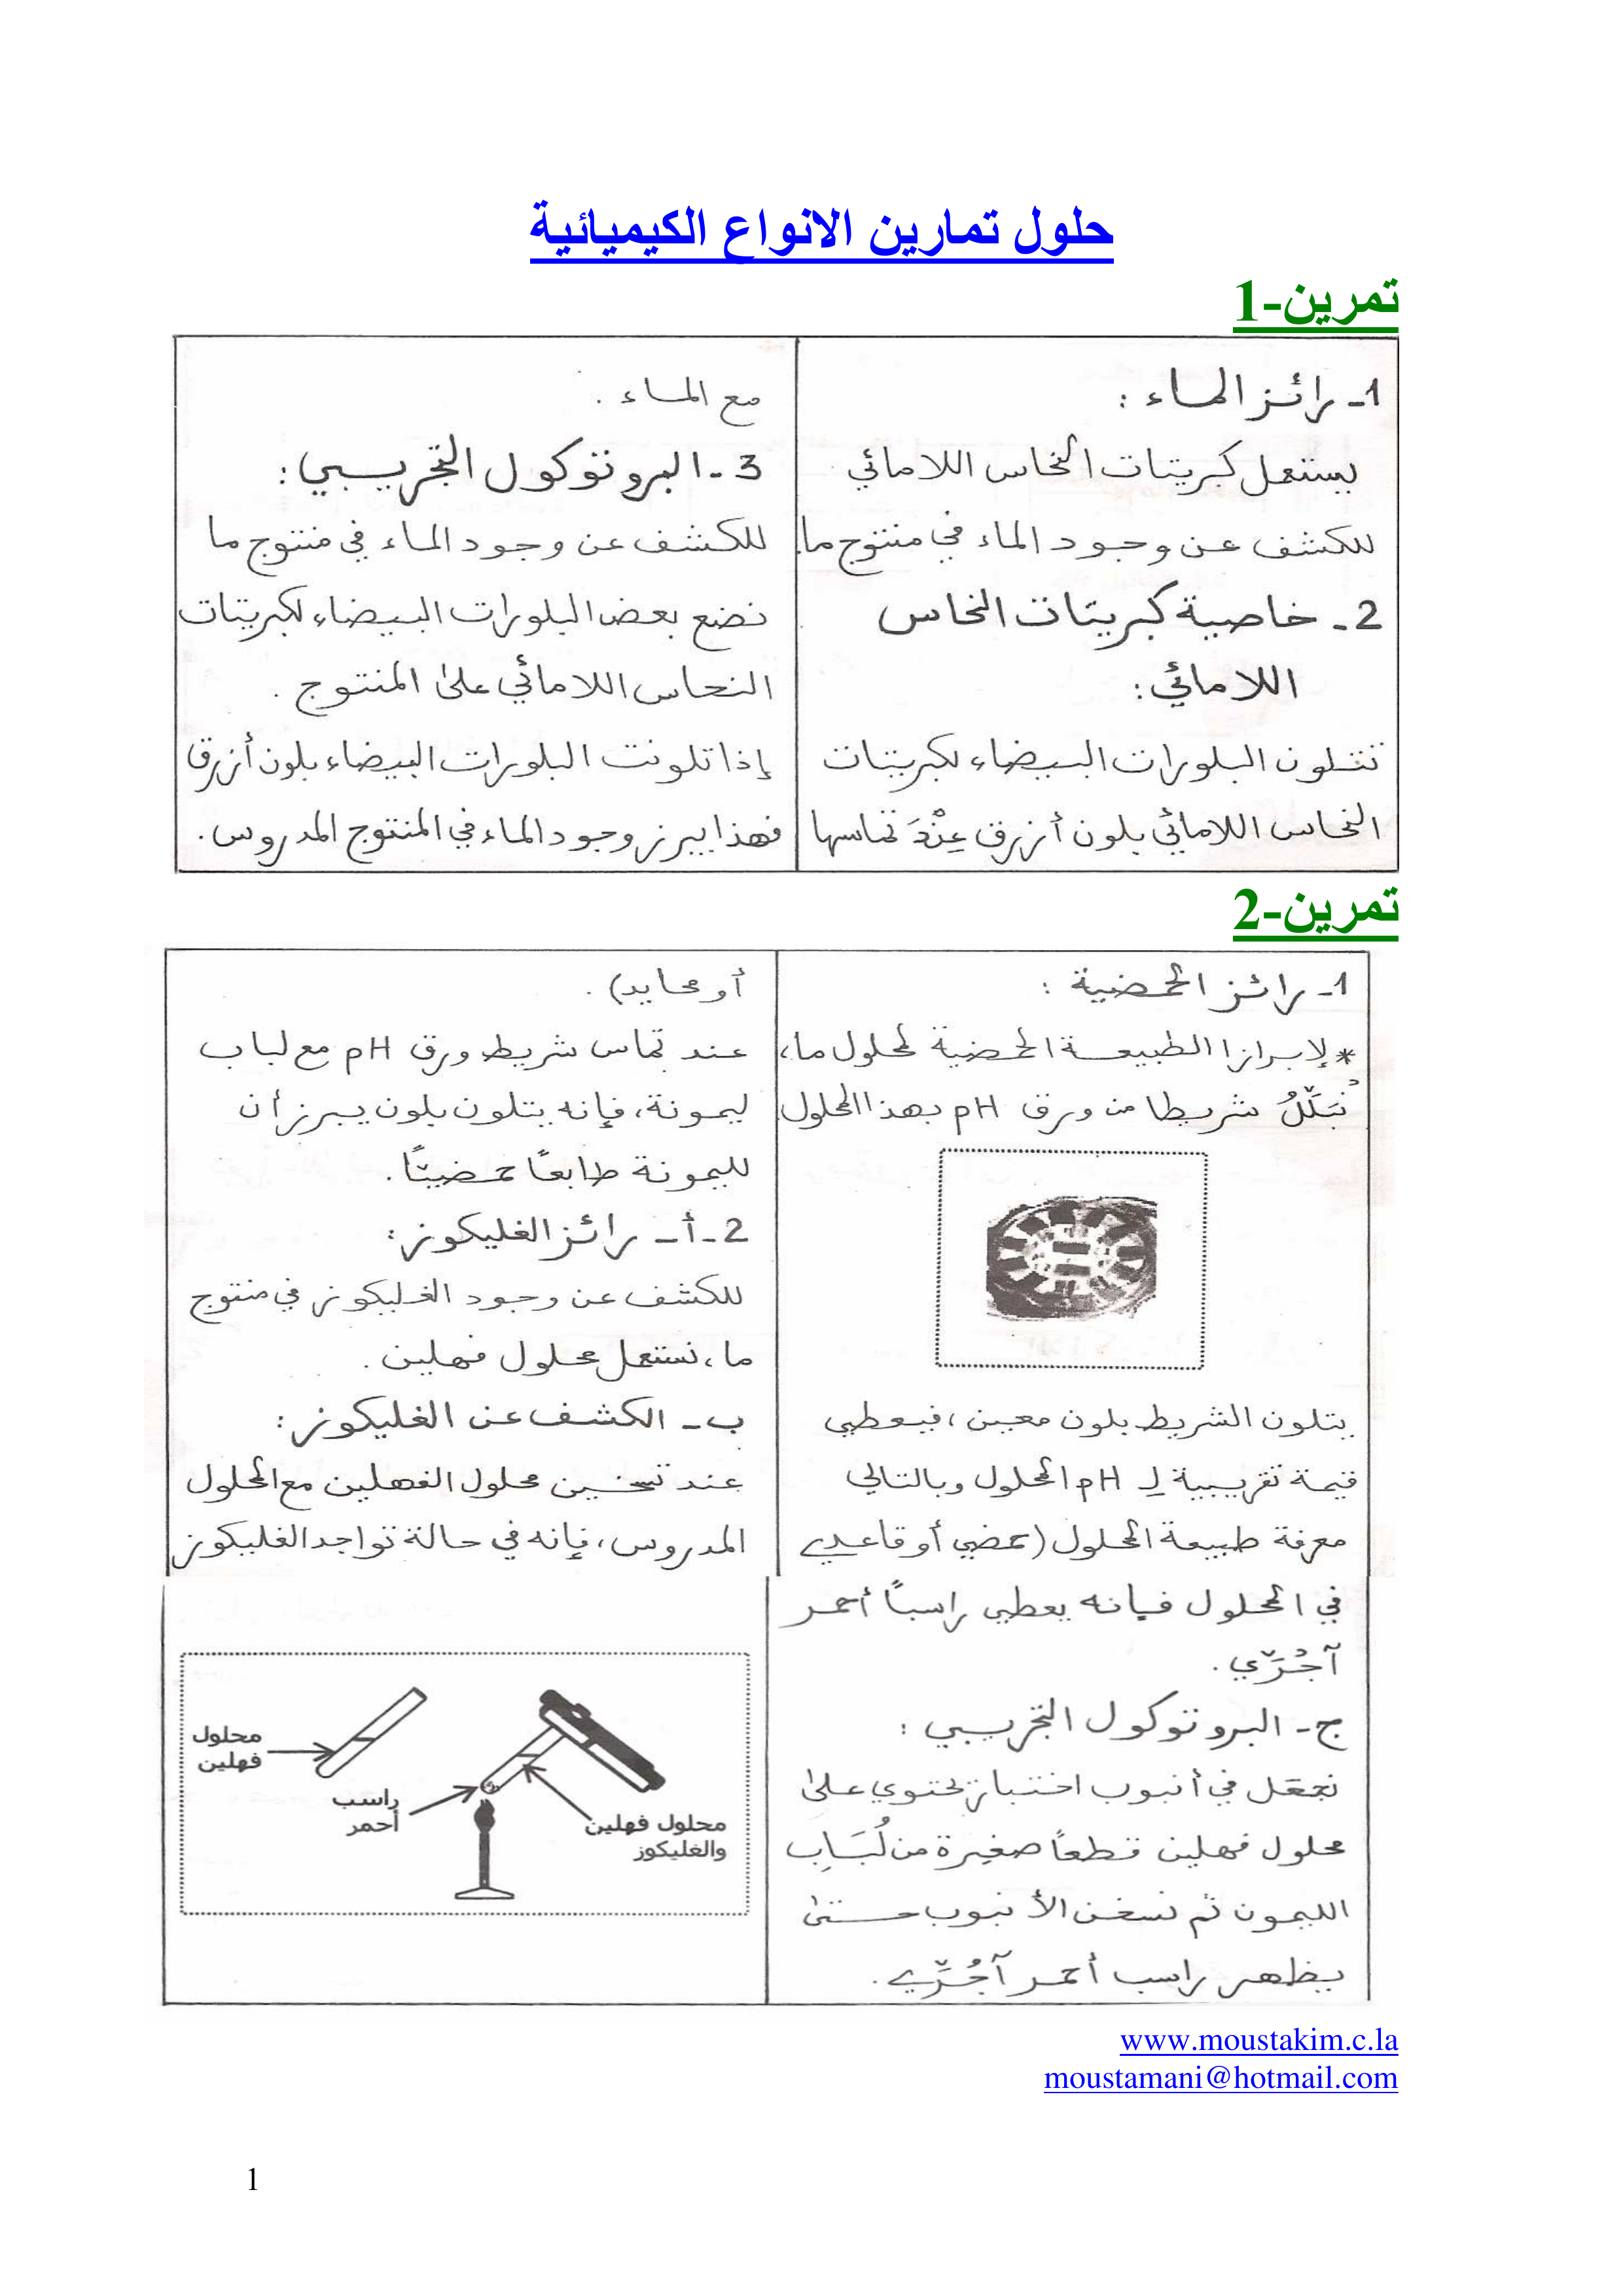 حلول تمارين الانواع الكيميائية
تمرين-1
1- رائز الماء :
يستعمل كبريتات النحاس اللامائي
للكشف عن وجود الماء في منتوج ما.
2- خاصية كبريتات النحاس
اللامائي:
تتلون البلورات البيضاء لكبريتات
النحاس اللامائي بلون أزرق عِنْدَ تماسها
مع الماء .
3- البروتوكول التجريبي:
للكشف عن وجود الماء في منتوج ما
نضع بعض البلورات البيضاء لكبريتات
النحاس اللامائي على المنتوج .
إذا تلونت البلورات البيضاء بلون أزرق
فهذا يبرز وجود الماء في المنتوج المدروس.
تمرين-2
1- رائز الحمضية :
* لإبراز الطبيعة الحمضية لمحلول ما،
نُبَلِّلُ شريطا من ورق pH بهذا المحلول
يتلون الشريط بلون معين، فيعطي
قيمة تقريبية لِـ pH المحلول وبالتالي
معرفة طبيعة المحلول (حمضي أو قاعدي
أو محايد) .
عند تماس شريط ورق pH مع لباب
ليمونة، فإنه يتلون بلون يبرز أن
لليمونة طابعًا حمضيًا.
2-أ- رائز الغليكوز:
للكشف عن وجود الغليكوز في منتوج
ما، نستعمل محلول فهلين .
ب- الكشف عن الغليكوز:
عند تسخين محلول الفهلين مع المحلول
المدروس، فإنه في حالة تواجد الغليكوز
في المحلول فإنه يعطي راسبًا أحمر
آجُرِّي.
ج- البروتوكول التجريبي :
نجعل في أنبوب اختبار يحتوي على
محلول فهلين قطعاً صغيرة من لُبَابِ
الليمون ثم نسخن الأنبوب حتى
يظهر راسب أحمر آجُرِّي.
محلول
فهلين
راسب
أحمر
محلول فهلين
والغليكوز
www.moustakim.c.la
moustamani@hotmail.com
1